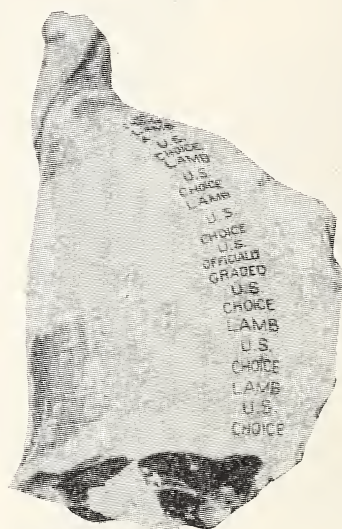 LAMB
U.S.
CHOICE
LAMB
U.S.
CHOICE
LAMB
U.S.
CHOICE
U.S.
OFFICIALLY
GRADED
U.S.
CHOICE
LAMB
U.S.
CHOICE
LAMB
U.S.
CHOICE